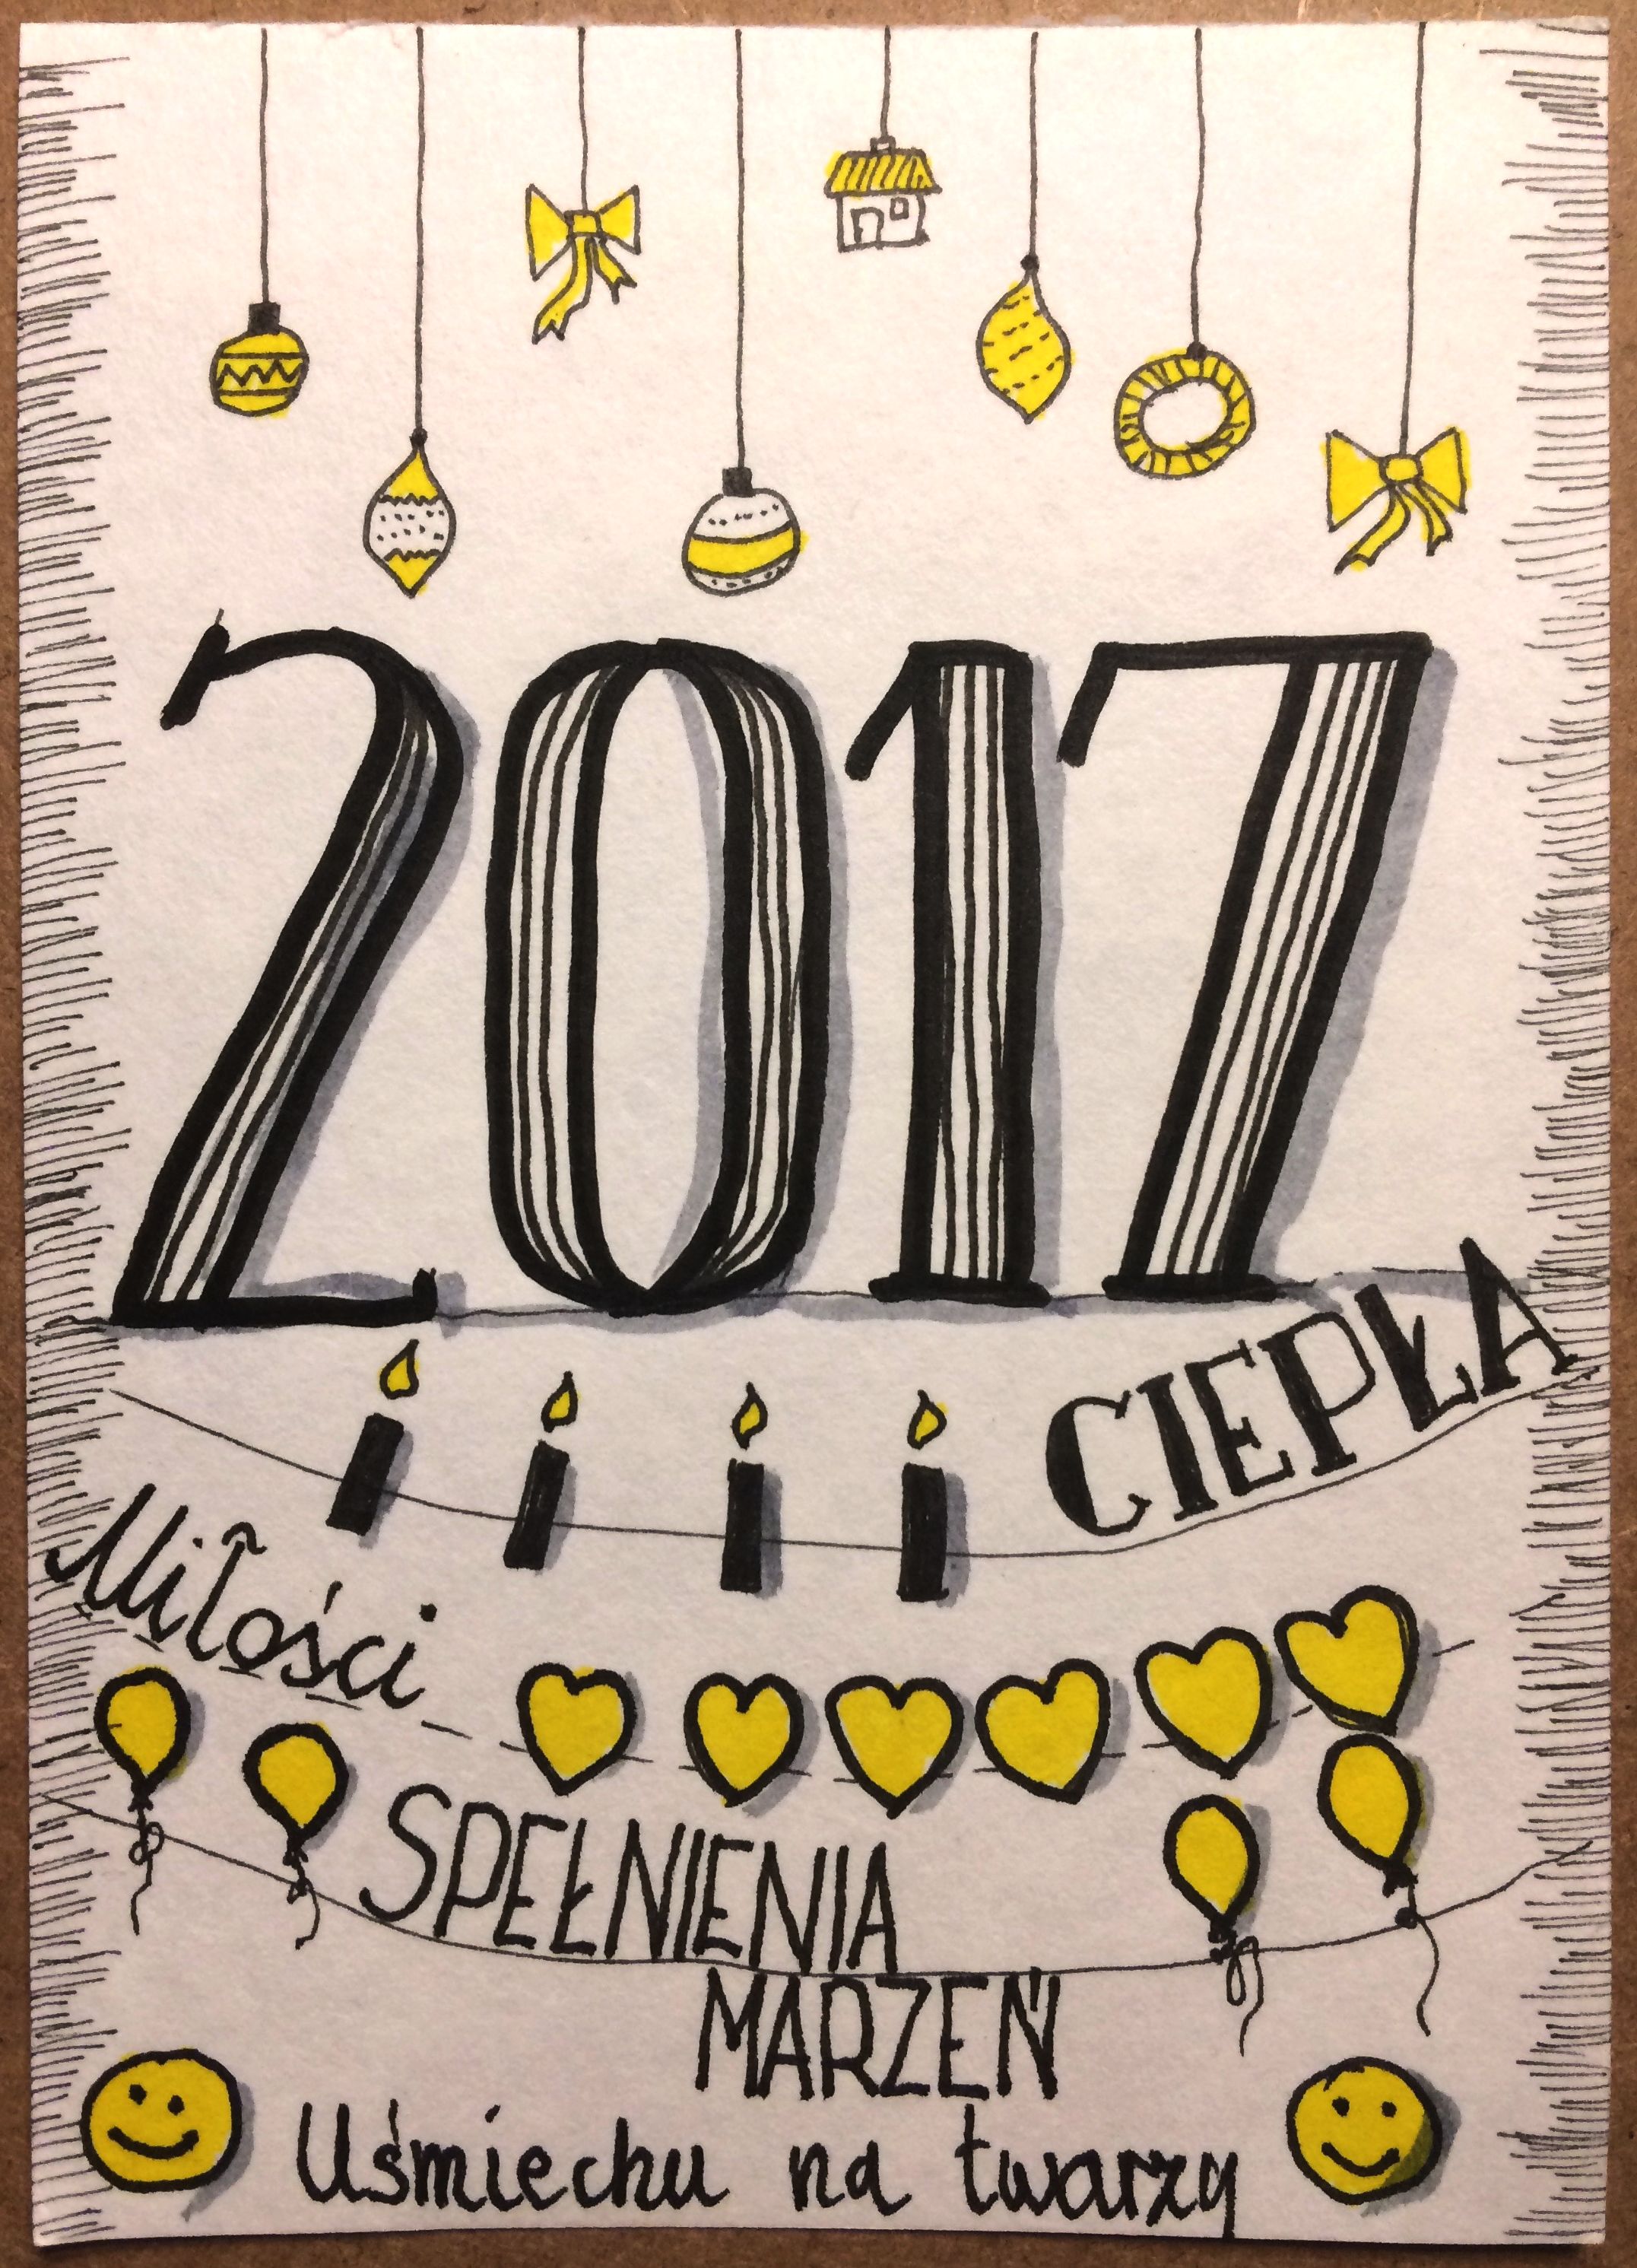 2017
CIEPŁA
Miłości
SPEŁNIENIA
MARZEŃ
Uśmiechu na twarzy